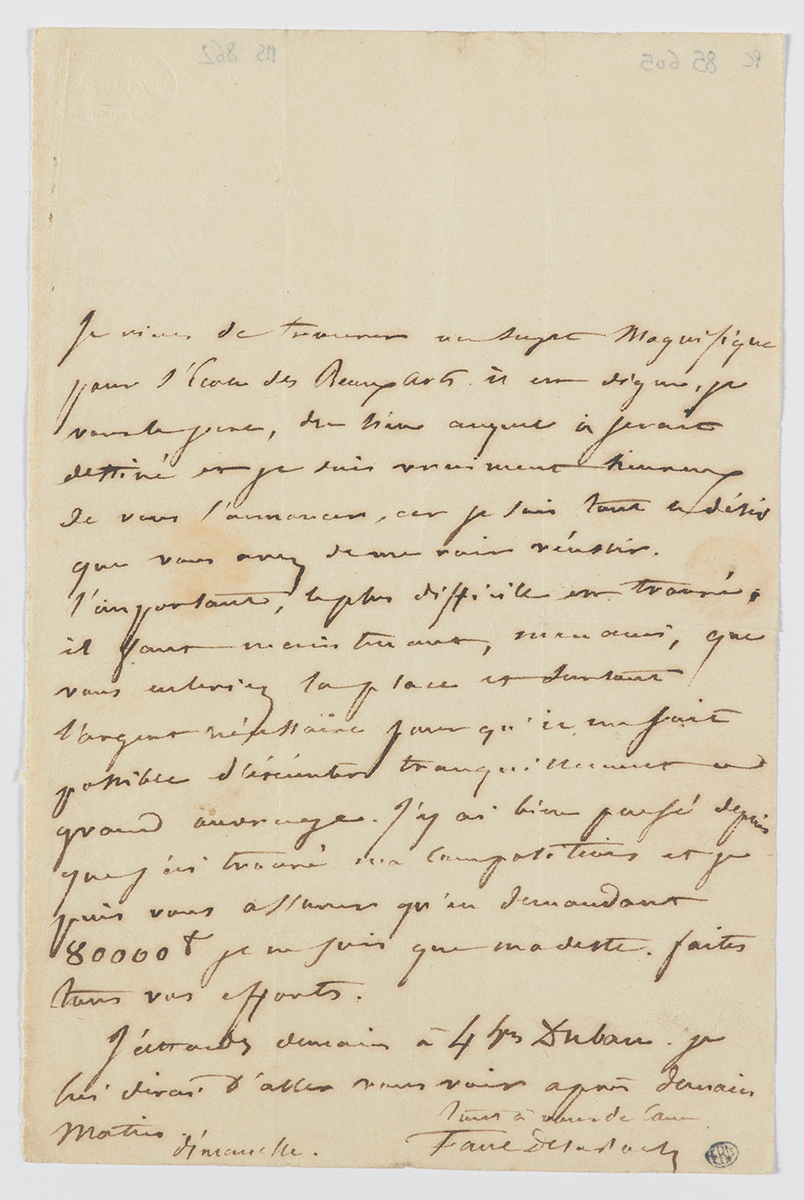 Je viens de trouver un sujet Magnifique
pour l'École des Beaux arts. il est digne, je
vous le jure, du lieu auquel il serait
destiné et je suis vraiment heureux
de vous l'annoncer, car je sais tout le désir
que vous avez de me voir réussir.
l'important, le plus difficile est trouvé.
il faut maintenant, mon ami, que
vous enleviez la place et surtout
l'argent nécessaire pour qu'il me soit
possible d'éxécuter tranquillement ce
grand ouvrage. J'y ai bien pensé depuis
que j'ai trouvé ma Composition et je
puis vous assurer qu'en demandant
80000 f je ne suis que modeste. faites
tous vos efforts.
J'attends demain à 4 hres Duban. je
lui dirai d'aller vous voir après demain
Matin.
tout à vous de Cœur
dimanche.
Paul Delaroche